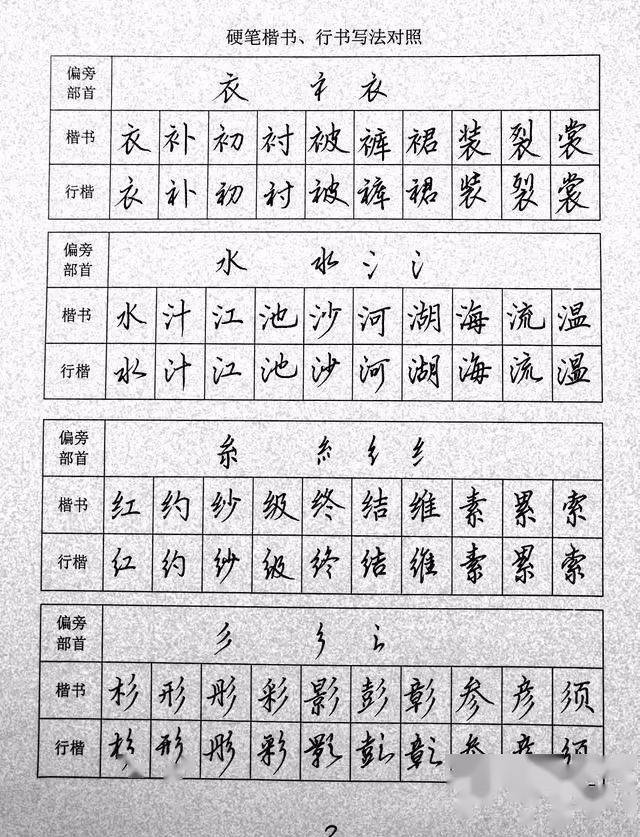 硬笔楷书、行书写法对照
偏旁部首 衣 衤 衣
楷书 衣 补 初 衬 被 裤 裙 装 裂 裳
行楷 衣 补 初 衬 被 裤 裙 装 裂 裳
偏旁部首 水 氺 氵 氵
楷书 水 汁 江 池 沙 河 湖 海 流 温
行楷 水 汁 江 池 沙 河 湖 海 流 温
偏旁部首 糸 糹 纟 纟
楷书 红 约 纱 级 终 结 维 素 累 索
行楷 红 约 纱 级 终 结 维 素 累 索
偏旁部首 彡 彡
楷书 杉 形 彤 彩 影 彭 彰 参 彦 须
行楷 杉 形 彤 彩 影 彭 彰 参 彦 须
2